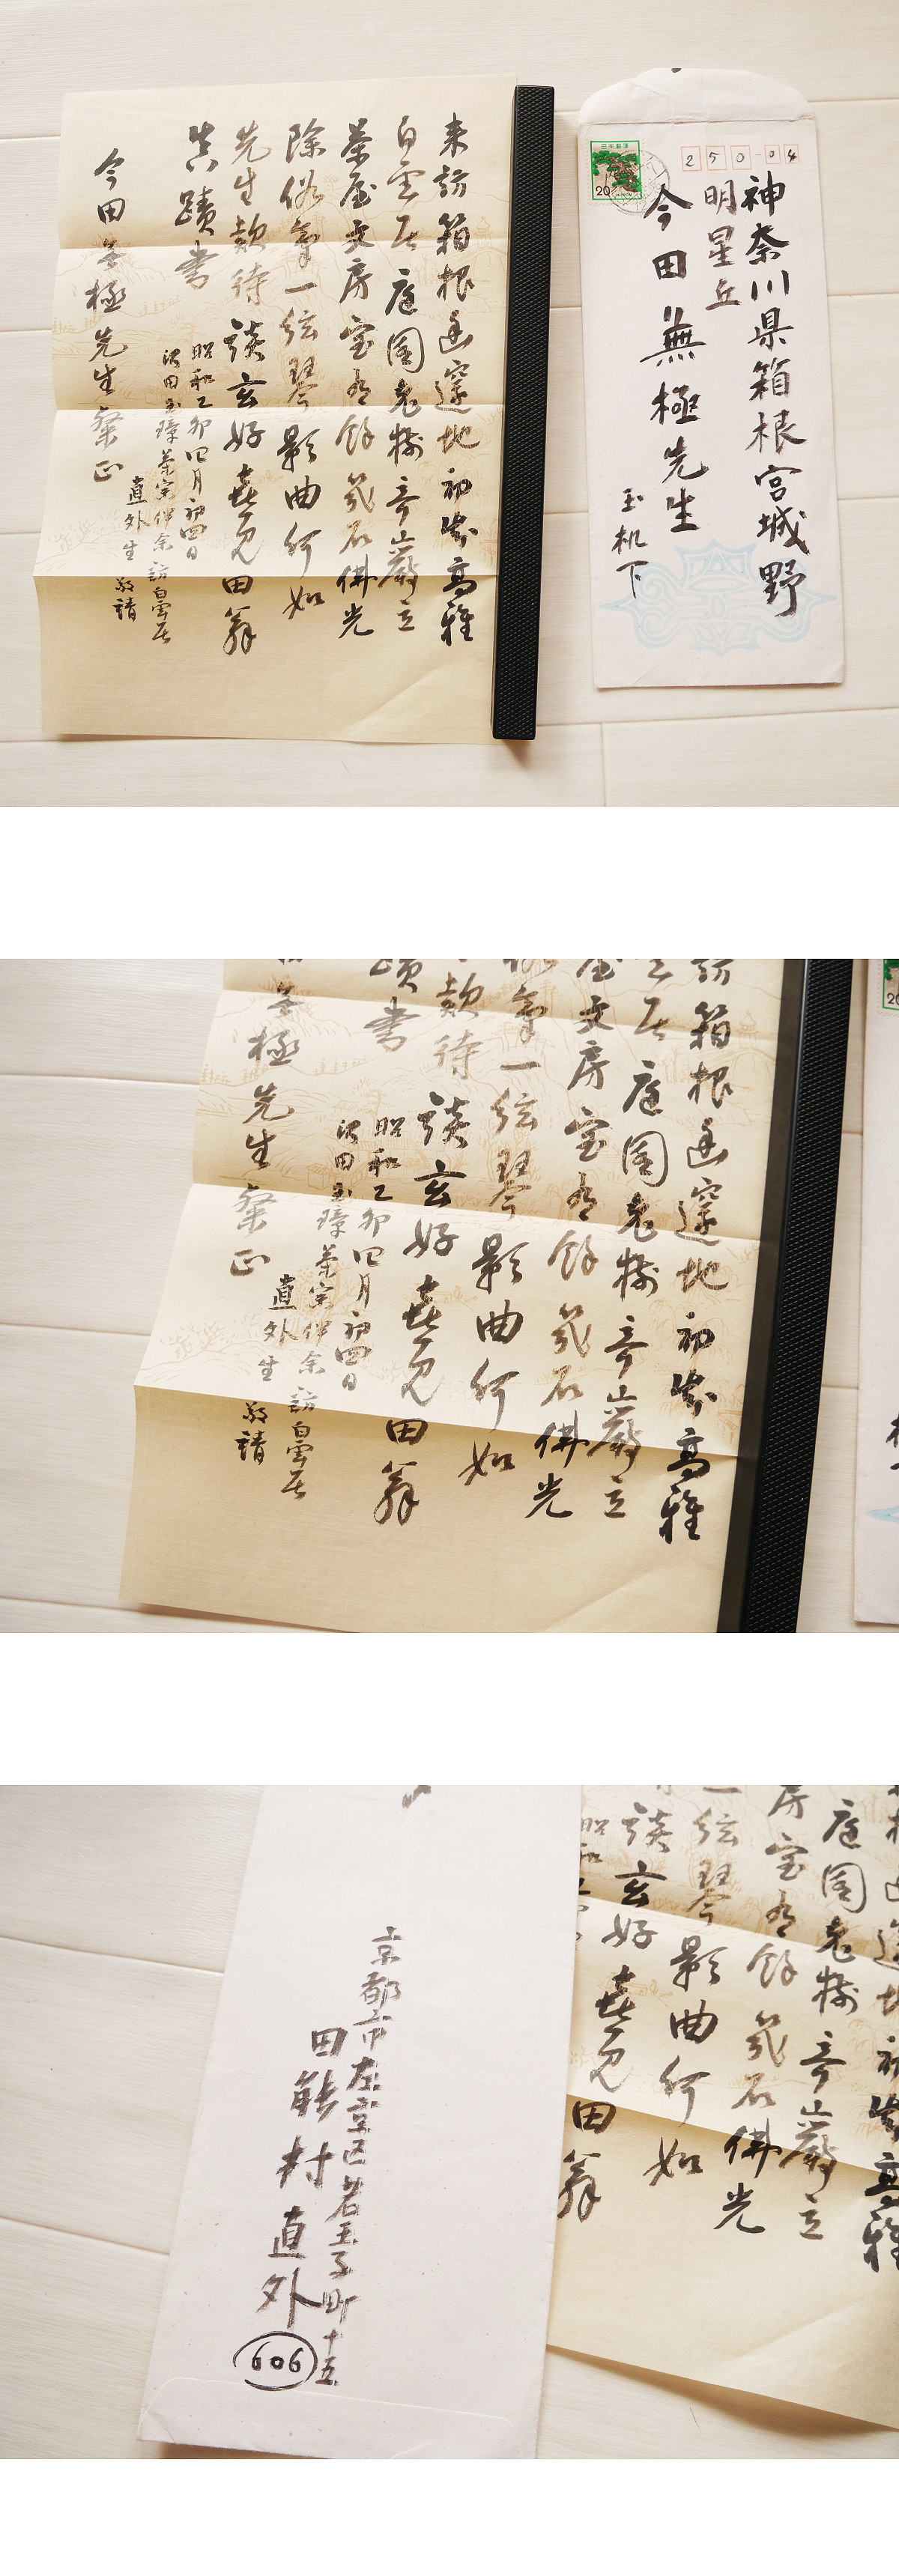 来訪箱根幽邃地初 高雅
白雲居庭園老樹奇巌立
茶屋文房室有餘 石佛光
除俗氣一弦琴影曲何如
先生款待談玄好喜見田翁
真蹟書
昭和乙卯四月初四日
沢田玉璋茶宗伴余訪白雲居
直外生 敬請
今田無極先生粲正
日本郵便
20
250-04
神奈川県箱根宮城野
明星丘
今田無極先生
玉机下
無極先生粲正
京都市左京区若王子町十五
田能村直外
606